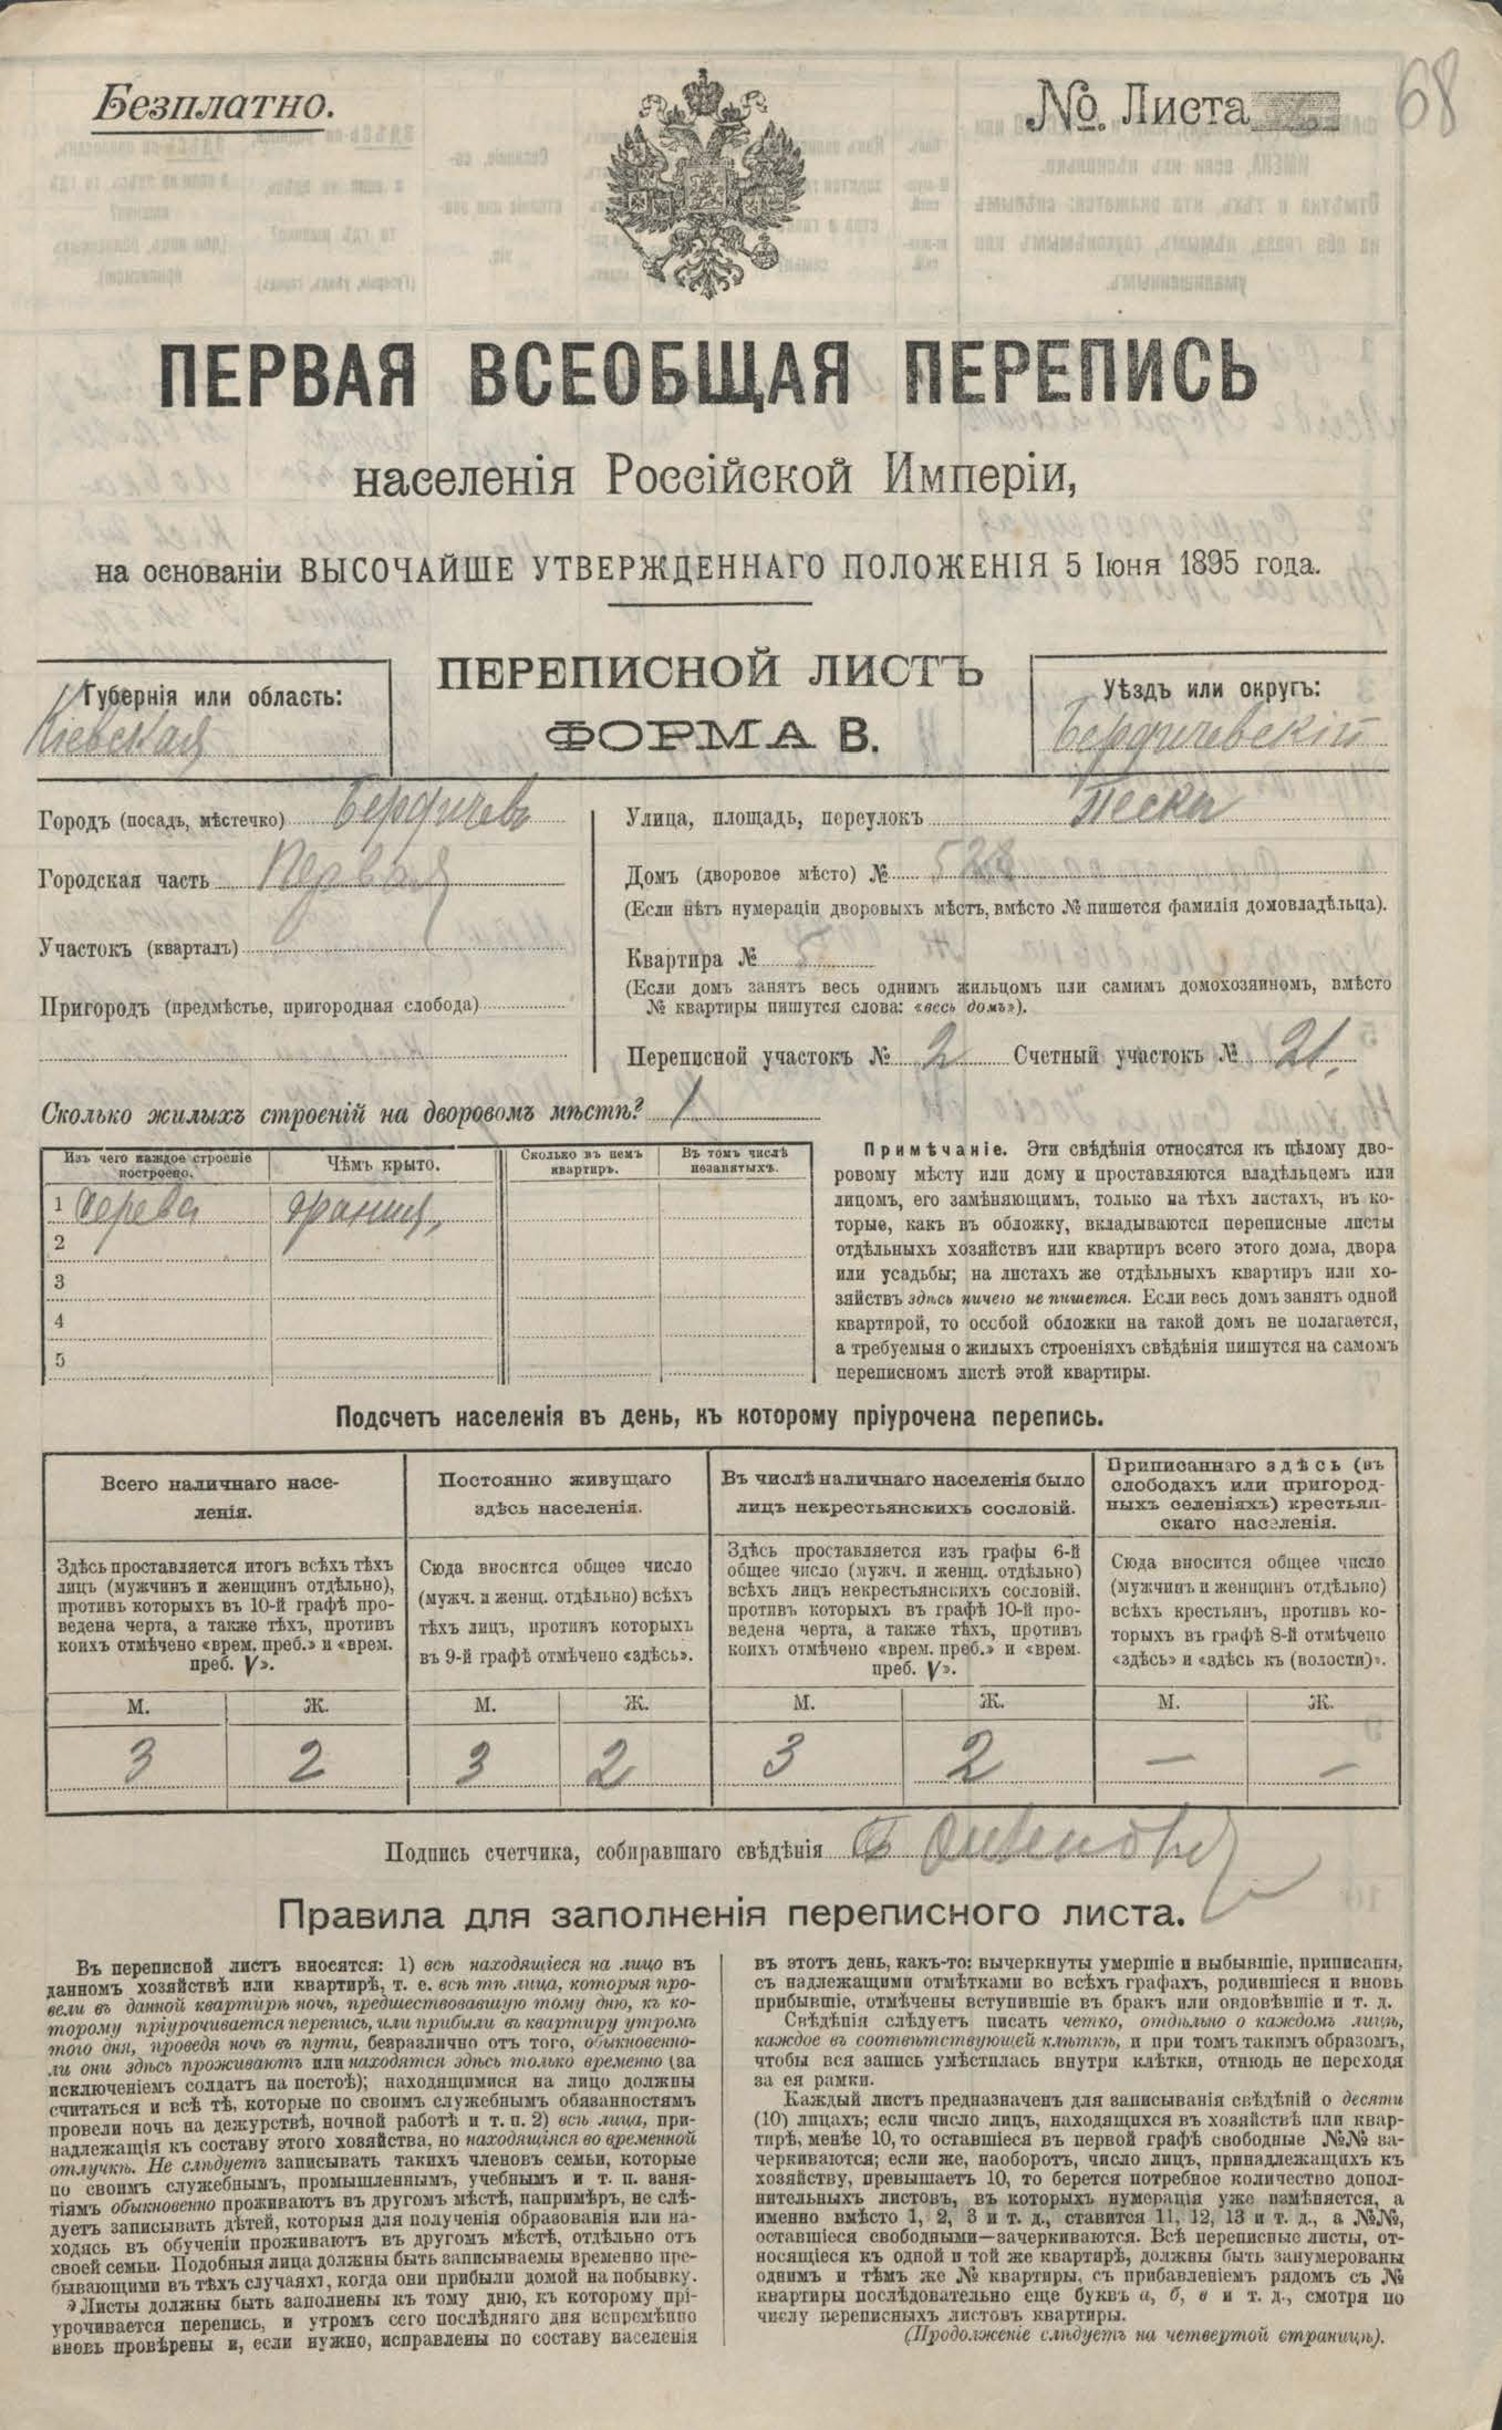 Безплатно.
№ Листа
68
ПЕРВАЯ ВСЕОБЩАЯ ПЕРЕПИСЬ
населенія Россійской Имперіи,
на основаніи ВЫСОЧАЙШЕ УТВЕРЖДЕННАГО ПОЛОЖЕНІЯ 5 Іюня 1895 года.
ПЕРЕПИСНОЙ ЛИСТЪ
ФОРМА В.
Губернія или область:
Кіевская
Уѣздъ или округъ:
Бердичевскій
Городъ (посадъ, мѣстечко) Бердичевъ
Городская часть Первая
Участокъ (кварталъ)
Пригородъ (предмѣстье, пригородная слобода)
Улица, площадь, переулокъ Пески
Домъ (дворовое мѣсто) №
(Если нѣтъ нумераціи дворовыхъ мѣстъ, вмѣсто № пишется фамилія домовладѣльца).
Квартира № 5
(Если домъ занятъ весь однимъ жильцомъ или самимъ домохозяиномъ, вмѣсто
№ квартиры пишутся слова: «весь домъ»).
Переписной участокъ № 2 Счетный участокъ № 21.
Сколько жилыхъ строеній на дворовомъ мѣстѣ? 1
Изъ чего каждое строеніе построено.
Чѣмъ крыто.
Сколько въ немъ квартиръ.
Въ томъ числѣ незанятыхъ.
1 дерева
2
3
4
5
Примѣчаніе. Эти свѣдѣнія относятся къ цѣлому дво-
ровому мѣсту или дому и проставляются владѣльцемъ или
лицомъ, его замѣняющимъ, только на тѣхъ листахъ, въ ко-
торые, какъ въ обложку, вкладываются переписные листы
отдѣльныхъ хозяйствъ или квартиръ всего этого дома, двора
или усадьбы; на листахъ же отдѣльныхъ квартиръ или хо-
зяйствъ здѣсь ничего не пишется. Если весь домъ занятъ одной
квартирой, то особой обложки на такой домъ не полагается,
а требуемыя о жилыхъ строеніяхъ свѣдѣнія пишутся на самомъ
переписномъ листѣ этой квартиры.
Подсчетъ населенія въ день, къ которому пріурочена перепись.
Всего наличнаго насе-
ленія.
Здѣсь проставляется итогъ всѣхъ тѣхъ
лицъ (мужчинъ и женщинъ отдѣльно),
противъ которыхъ въ 10-й графѣ про-
ведена черта, а также тѣхъ, противъ
коихъ отмѣчено «врем. преб.» и «врем.
преб. V».
М. Ж.
3 2
Постоянно живущаго
здѣсь населенія.
Сюда вносится общее число
(мужч. и женщ. отдѣльно) всѣхъ
тѣхъ лицъ, противъ которыхъ
въ 9-й графѣ отмѣчено «здѣсь».
М. Ж.
3 2
Въ числѣ наличнаго населенія было
лицъ некрестьянскихъ сословій.
Здѣсь проставляется изъ графы 6-й
общее число (мужч. и женщ. отдѣльно)
всѣхъ лицъ некрестьянскихъ сословій,
противъ которыхъ въ графѣ 10-й про-
ведена черта, а также тѣхъ, противъ
коихъ отмѣчено «врем. преб.» и «врем.
преб. V».
М. Ж.
3 2
Приписаннаго здѣсь (въ
слободахъ или пригород-
ныхъ селеніяхъ) крестьян-
скаго населенія.
Сюда вносится общее число
(мужчинъ и женщинъ отдѣльно)
всѣхъ крестьянъ, противъ ко-
торыхъ въ графѣ 8-й отмѣчено
«здѣсь» и «здѣсь къ (волости)».
М. Ж.
— —
Подпись счетчика, собиравшаго свѣдѣнія
Правила для заполненія переписного листа.
Въ переписной листъ вносятся: 1) всѣ находящіеся на лицо въ
данномъ хозяйствѣ или квартирѣ, т. е. всѣ тѣ лица, которыя про-
вели въ данной квартирѣ ночь, предшествовавшую тому дню, къ ко-
торому пріурочивается перепись, или прибыли въ квартиру утромъ
того дня, проведя ночь въ пути, безразлично отъ того, обыкновенно-
ли они здѣсь проживаютъ или находятся здѣсь только временно (за
исключеніемъ солдатъ на постоѣ); находящимися на лицо должны
считаться и всѣ тѣ, которые по своимъ служебнымъ обязанностямъ
провели ночь на дежурствѣ, ночной работѣ и т. п. 2) всѣ лица, при-
надлежащія къ составу этого хозяйства, но находящіяся во временной
отлучкѣ. Не слѣдуетъ записывать такихъ членовъ семьи, которые
по своимъ служебнымъ, промышленнымъ, учебнымъ и т. п. заня-
тіямъ обыкновенно проживаютъ въ другомъ мѣстѣ, напримѣръ, не слѣ-
дуетъ записывать дѣтей, которыя для полученія образованія или на-
ходясь въ обученіи проживаютъ въ другомъ мѣстѣ, отдѣльно отъ
своей семьи. Подобныя лица должны быть записываемы временно пре-
бывающими въ тѣхъ случаяхъ, когда они прибыли домой на побывку.
Листы должны быть заполнены къ тому дню, къ которому прі-
урочивается перепись, и утромъ сего послѣдняго дня непремѣнно
вновь провѣрены и, если нужно, исправлены по составу населенія
въ этотъ день, какъ-то: вычеркнуты умершіе и выбывшіе, приписаны,
съ надлежащими отмѣтками во всѣхъ графахъ, родившіеся и вновь
прибывшіе, отмѣчены вступившіе въ бракъ или овдовѣвшіе и т. д.
Свѣдѣнія слѣдуетъ писать четко, отдѣльно о каждомъ лицѣ,
каждое въ соотвѣтствующей клѣткѣ, и при томъ такимъ образомъ,
чтобы вся запись умѣстилась внутри клѣтки, отнюдь не переходя
за ея рамки.
Каждый листъ предназначенъ для записыванія свѣдѣній о десяти
(10) лицахъ; если число лицъ, находящихся въ хозяйствѣ или квар-
тирѣ, менѣе 10, то оставшіеся въ первой графѣ свободные №№ за-
черкиваются; если же, наоборотъ, число лицъ, принадлежащихъ къ
хозяйству, превышаетъ 10, то берется потребное количество допол-
нительныхъ листовъ, въ которыхъ нумерація уже измѣняется, а
именно вмѣсто 1, 2, 3 и т. д., ставится 11, 12, 13 и т. д., а №№,
оставшіеся свободными—зачеркиваются. Всѣ переписные листы, от-
носящіеся къ одной и той же квартирѣ, должны быть занумерованы
однимъ и тѣмъ же № квартиры, съ прибавленіемъ рядомъ съ №
квартиры послѣдовательно еще буквъ а, б, в и т. д., смотря по
числу переписныхъ листовъ квартиры.
(Продолженіе слѣдуетъ на четвертой страницѣ).